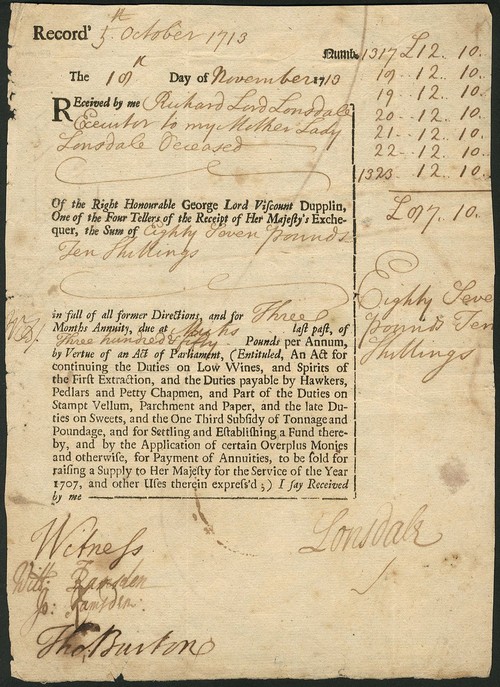 Record' 5th October 1713
Numb. 1317 £12.. 10..
The 10th Day of November 1713
19 -- 12.. 10.
REceived by me Richard Lord Lonsdale
19 -- 12. 10.
Executor to my Mother Lady
20 -- 12. 10.
Lonsdale Deceased
21 -- 12. 10.
22 -- 12. 10.
1323 -- 12. 10.
Of the Right Honourable George Lord Viscount Dupplin,
£87.. 10..
One of the Four Tellers of the Receipt of Her Majesty's Exche-
quer, the Sum of Eighty Seven pounds
Ten Shillings
Eighty Seve
pounds Ten
Shillings
in full of all former Directions, and for Three
Months Annuity, due at last past, of
Three hundred & fifty Pounds per Annum,
by Vertue of an Act of Parliament, (Entituled, An Act for
continuing the Duties on Low Wines, and Spirits of
the First Extraction, and the Duties payable by Hawkers,
Pedlars and Petty Chapmen, and Part of the Duties on
Stampt Vellum, Parchment and Paper, and the late Du-
ties on Sweets, and the One Third Subsidy of Tonnage and
Poundage, and for Settling and Establishing a Fund there-
by, and by the Application of certain Overplus Monies
and otherwise, for Payment of Annuities, to be sold for
raising a Supply to Her Majesty for the Service of the Year
1707, and other Uses therein express'd;) I say Received
by me
Lonsdale
Witness
Will: Ramsden
Jo: Ramsden
Tho. Burton